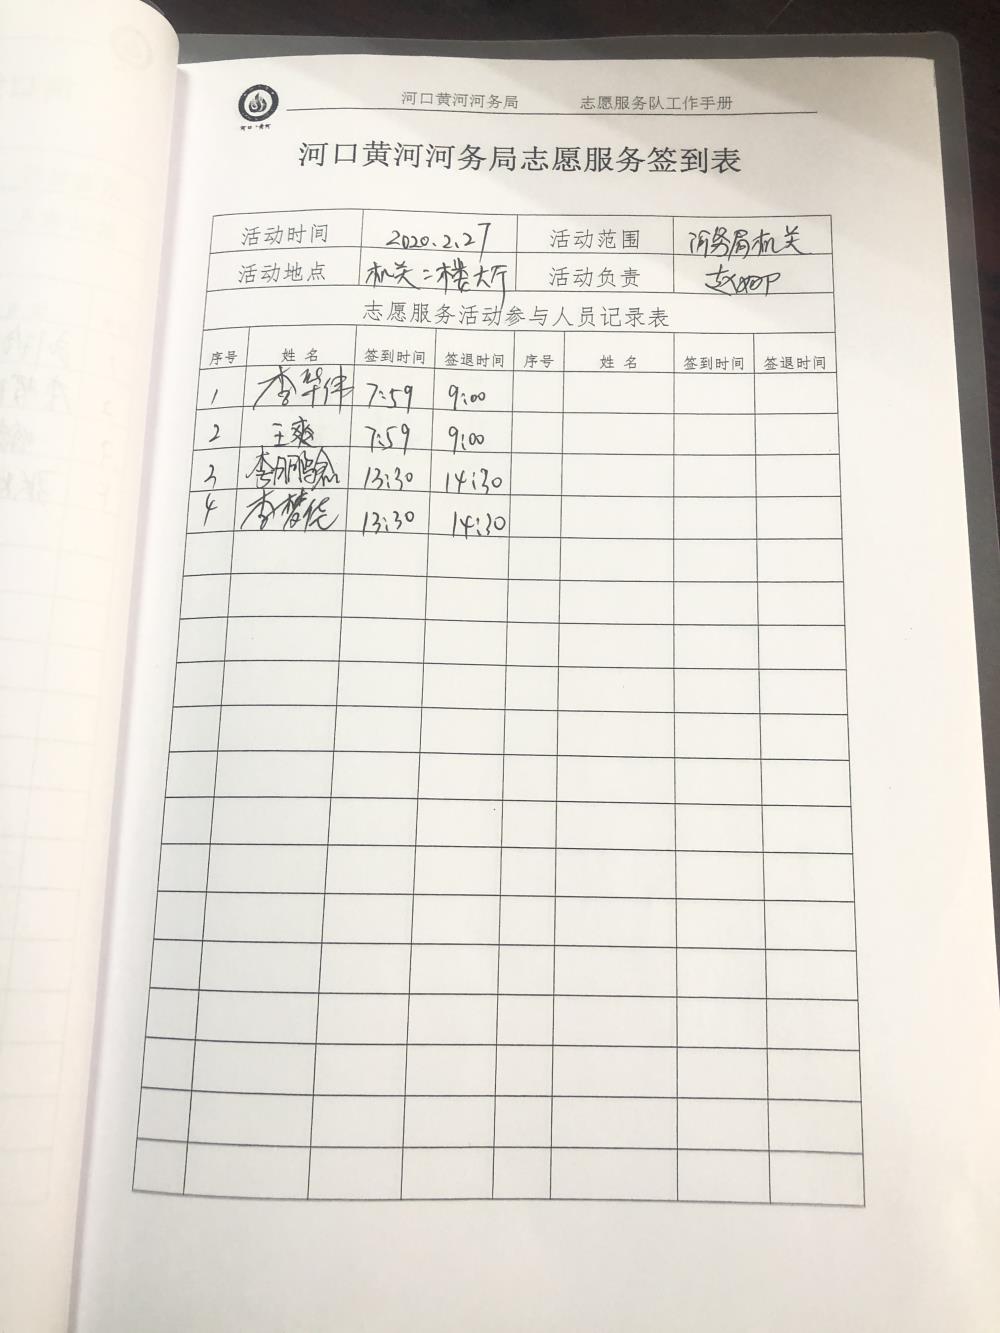 河口黄河河务局 志愿服务队工作手册
河口·黄河
河口黄河河务局志愿服务签到表
活动时间 2020.2.27 活动范围 河务局机关
活动地点 机关二楼大厅 活动负责
志愿服务活动参与人员记录表
序号 姓名 签到时间 签退时间 序号 姓名 签到时间 签退时间
1 李华伟 7:59 9:00
2 王爽 7:59 9:00
3 李鹏 13:30 14:30
4 李梦佳 13:30 14:30